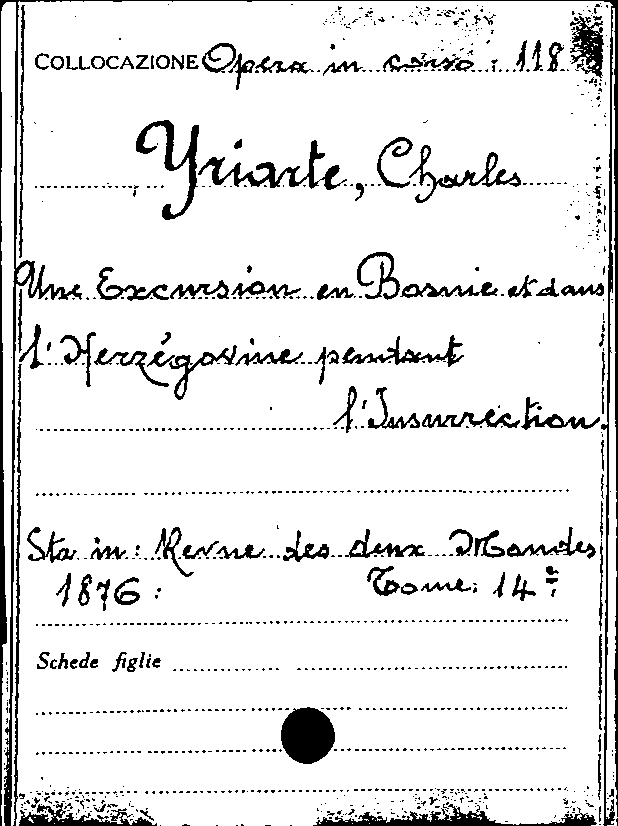 COLLOCAZIONE Opera in corso: 118
Yriarte, Charles
Une Excursion en Bosnie et dans
l'Herzégovine pendant
l'Insurrection.
Sta in: Revue des deux Mondes
1876: Tome: 14e
Schede figlie